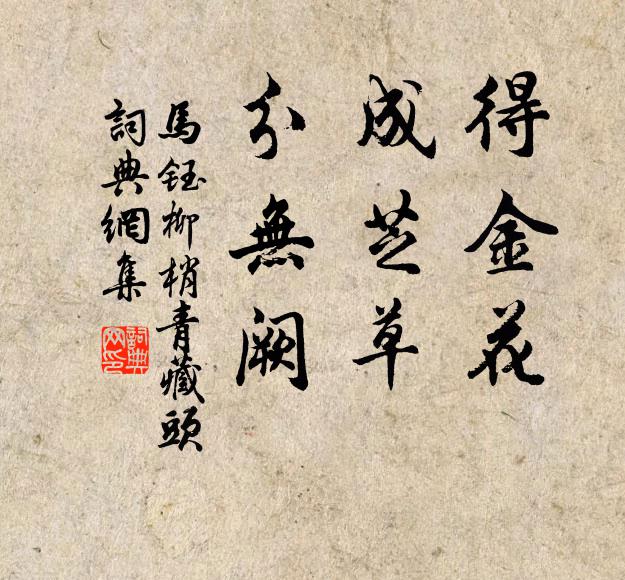 得金花
成芝草
分無闕
馬鈺柳梢青藏頭
詞典網集
詞典网印